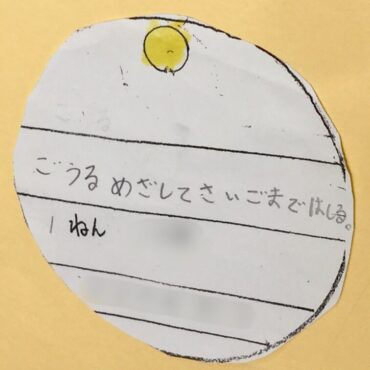 ごうるめざしてさいごまではしる。
1ねん